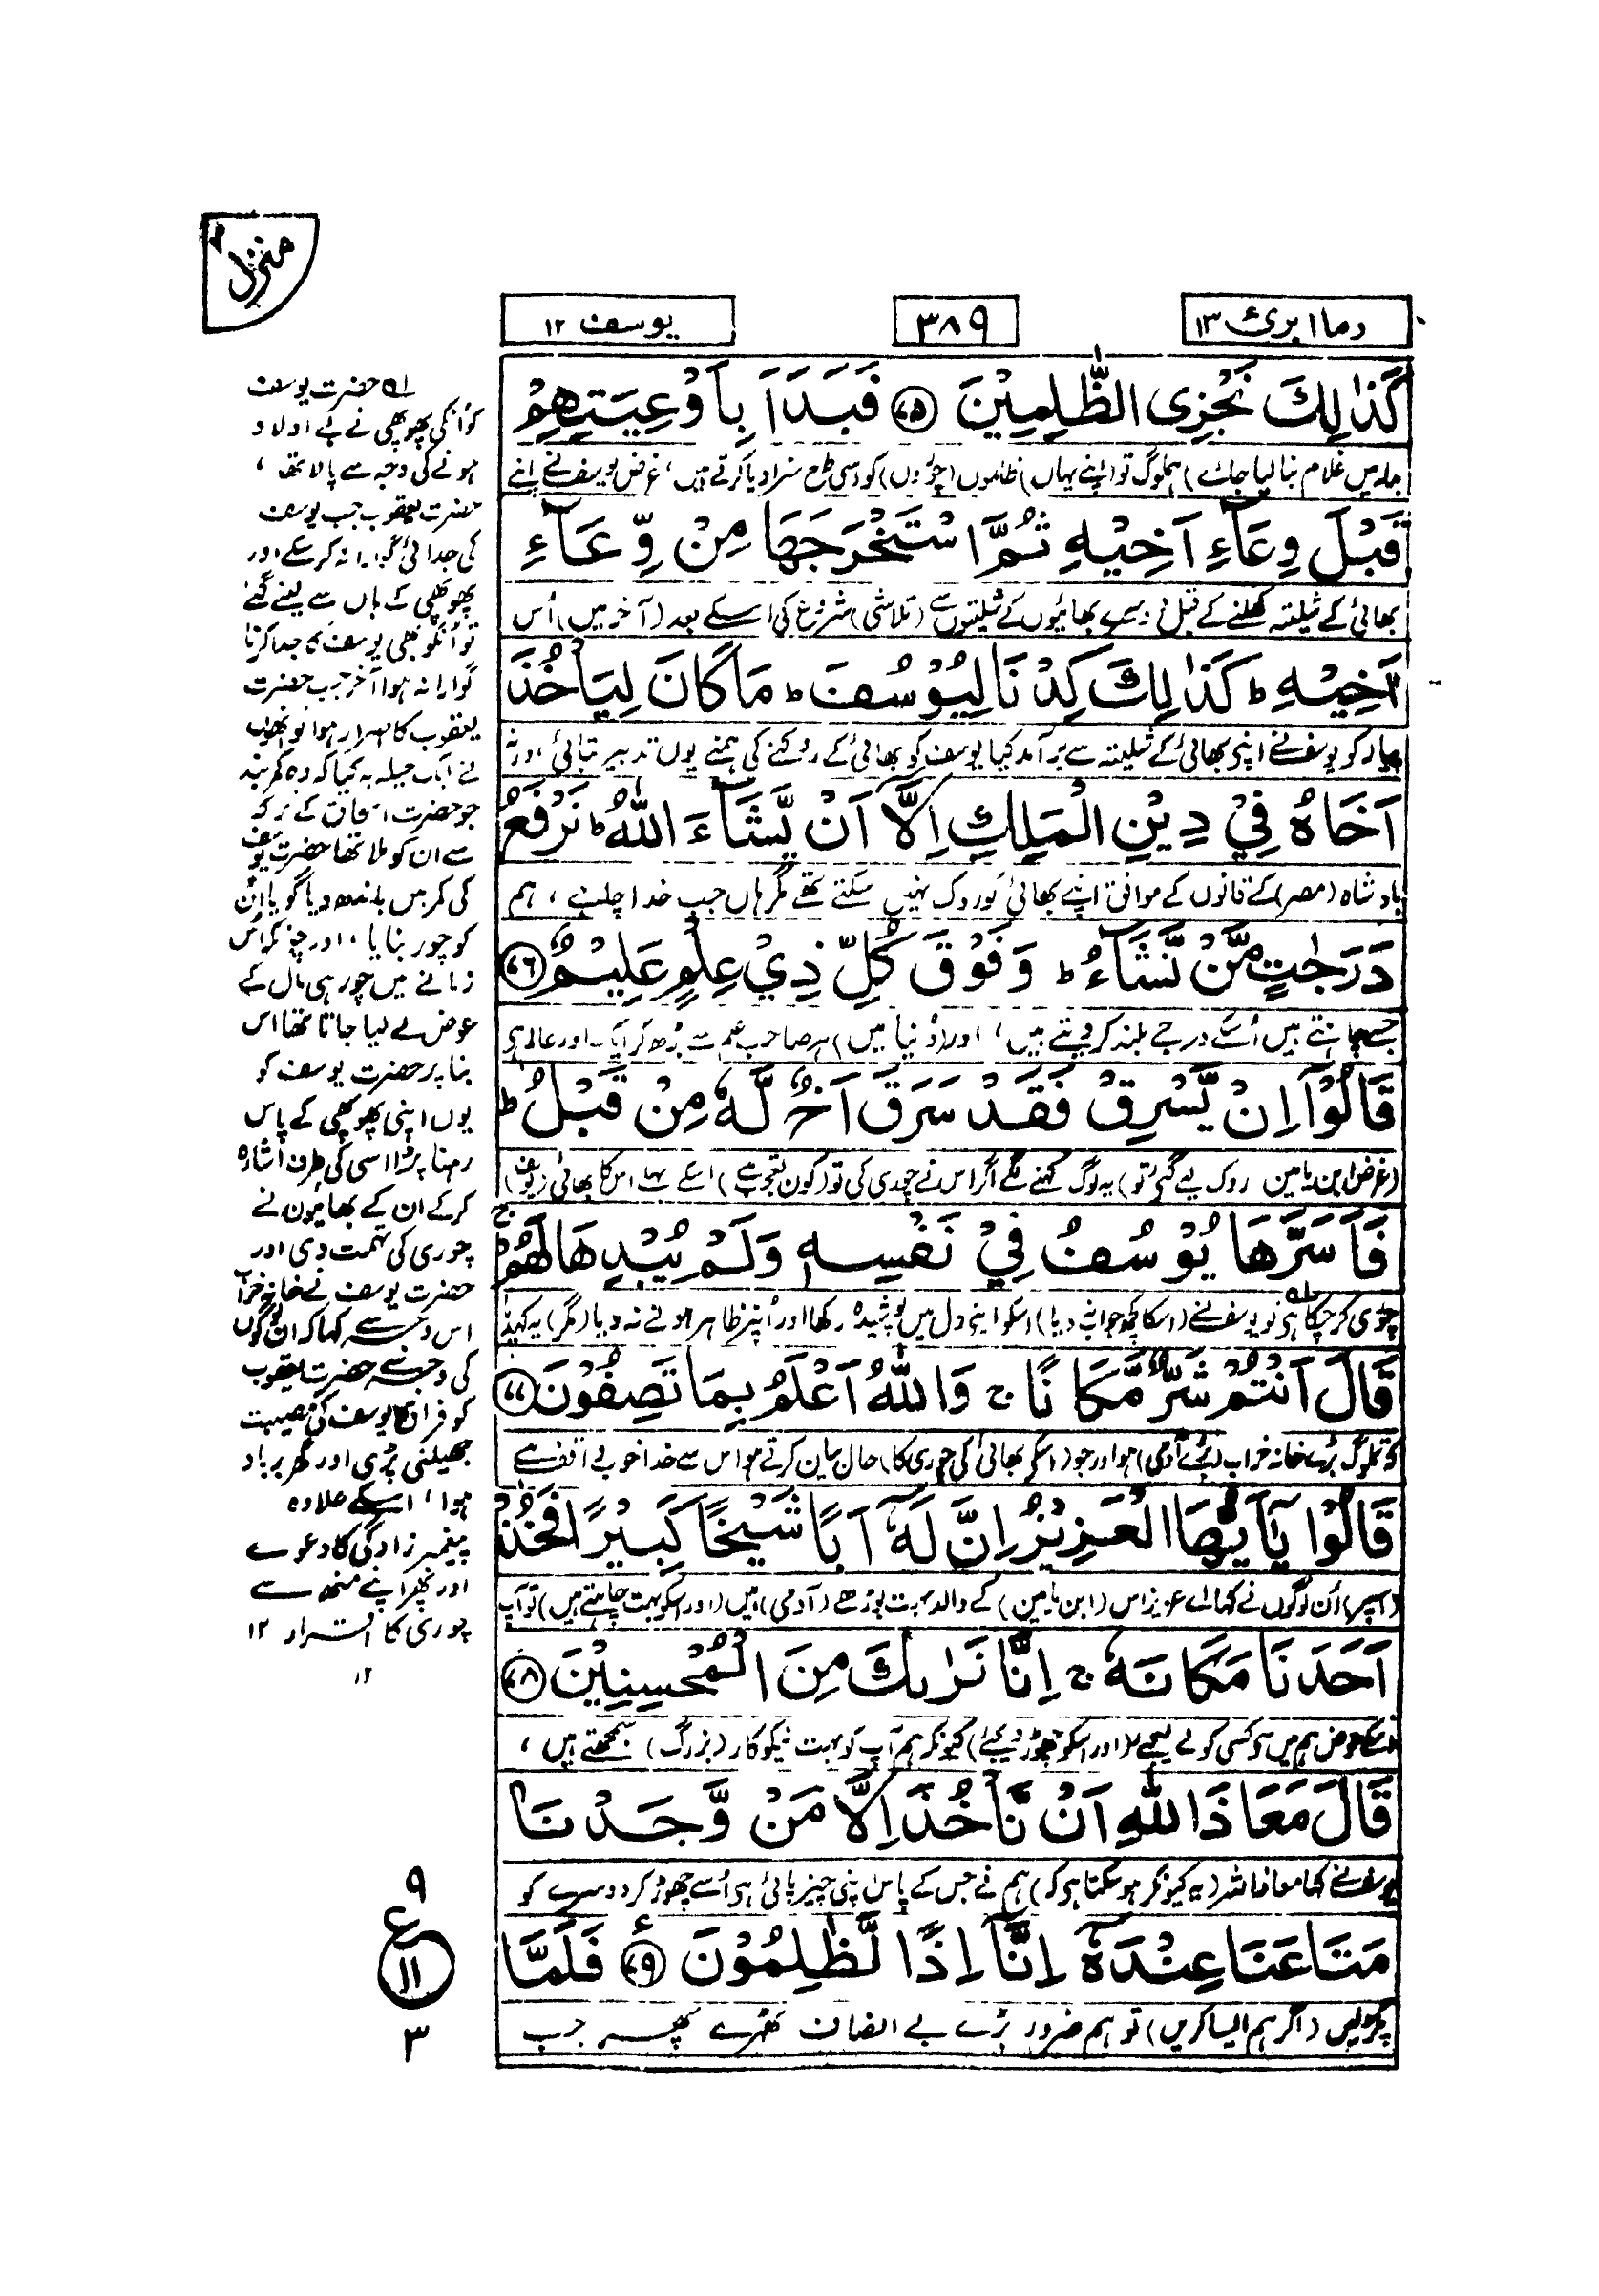 منزل ۳
وما ابرئ ۱۳
۳۸۹
یوسف ۱۲
كَذٰلِكَ نَجْزِى الظّٰلِمِيْنَ ﴿۷۵﴾ فَبَدَاَ بِاَوْعِيَتِهِمْ
بنا لیا جائے) ہملوگ تو (اپنے یہاں) ظالموں (چوروں) کو اسی طرح سزا دیا کرتے ہیں، غرض یوسف نے اپنے
قَبْلَ وِعَآءِ اَخِيْهِ ثُمَّ اسْتَخْرَجَهَا مِنْ وِّعَآءِ
بھائی کے شلیتہ کھلنے کے قبل دوسرے بھائیوں کے شلیتوں سے (تلاشی) شروع کی اسکے بعد (آخر میں) اُس
اَخِيْهِ ؕ كَذٰلِكَ كِدْنَا لِيُوْسُفَ ؕ مَا كَانَ لِيَاْخُذَ
کو یوسف نے اپنے بھائی کے شلیتہ سے برآمد کیا یوسف کو بھائی کے روکنے کی ہمنے یوں تدبیر بتائی ورنہ
اَخَاهُ فِيْ دِيْنِ الْمَلِكِ اِلَّاۤ اَنْ يَّشَآءَ اللّٰهُ ؕ نَرْفَعُ
بادشاہ (مصر) کے قانون کے موافق اپنے بھائی کو روک نہیں سکتے تھے مگر ہاں جب خدا چاہے، ہم
دَرَجٰتٍ مَّنْ نَّشَآءُ ؕ وَفَوْقَ كُلِّ ذِيْ عِلْمٍ عَلِيْمٌ ﴿۷۶﴾
جسے چاہتے ہیں اُسکے درجے بلند کردیتے ہیں، اور (دنیا میں) ہر صاحب علم سے بڑھ کر ایک اور عالم ہی
قَالُوْۤا اِنْ يَّسْرِقْ فَقَدْ سَرَقَ اَخٌ لَّهٗ مِنْ قَبْلُ ؕ
(غرض ابن یامین روک لیے گئے تو) یہ لوگ کہنے لگے اگر اس نے چوری کی تو (کون تعجب ہے) اسکے پہلے اس کا بھائی (یوسف)
فَاَسَرَّهَا يُوْسُفُ فِيْ نَفْسِهٖ وَلَمْ يُبْدِهَا لَهُمْ ۚ
چوری کر چکا ہی تو یوسف نے (اسکا کچھ جواب نہ دیا) اسکو اپنے دل میں پوشیدہ رکھا اور اُنپر ظاہر ہونے نہ دیا (مگر) یہ کہدیا
قَالَ اَنْتُمْ شَرٌّ مَّكَانًا ۚ وَاللّٰهُ اَعْلَمُ بِمَا تَصِفُوْنَ ﴿۷۷﴾
کہ تملوگ بڑے خانہ خراب (برے آدمی) ہو اور جو (اسکے بھائی کی چوری کا) حال بیان کرتے ہو اس سے خدا خوب واقف ہے
قَالُوْا يٰۤاَيُّهَا الْعَزِيْزُ اِنَّ لَهٗۤ اَبًا شَيْخًا كَبِيْرًا فَخُذْ
(اسپر) اُن لوگوں نے کہا اے عزیز اس (ابن یامین) کے والد بہت بوڑھے (آدمی) ہیں (اور اسکو بہت چاہتے ہیں) تو آپ
اَحَدَنَا مَكَانَهٗ ۚ اِنَّا نَرٰىكَ مِنَ الْمُحْسِنِيْنَ ﴿۷۸﴾
اسکے عوض ہم میں سے کسی کو لے لیجیے اور اسکو چھوڑ دیجئے) کیونکر ہم آپ کو بہت نیکوکار (بزرگ) سمجھتے ہیں،
قَالَ مَعَاذَ اللّٰهِ اَنْ نَّاْخُذَ اِلَّا مَنْ وَّجَدْنَا
یوسف نے کہا معاذ اللہ (یہ کیونکر ہو سکتا ہی کہ) ہم نے جس کے پاس اپنی چیز پائی ہی اُسے چھوڑ کر دوسرے کو
مَتَاعَنَا عِنْدَهٗۤ اِنَّاۤ اِذًا لَّظٰلِمُوْنَ ﴿۷۹﴾ ع فَلَمَّا
پکڑ لیں (اگر ہم ایسا کریں) تو ہم ضرور بڑے بے انصاف ٹھہرے پھر جب
۱؎ حضرت یوسف
کو اُنکی پھوپھی نے بے اولاد
ہونے کی وجہ سے پالا تھا،
حضرت یعقوب جب یوسف
کی جدائی گوارا نہ کرسکے اور
پھوپھی کے ہاں سے لینے گئے
تو اُنکو بھی یوسف کا جدا کرنا
گوارا نہ ہوا آخر جب حضرت
یعقوب کا اصرار ہوا تو اُنھوں
نے ایک حیلہ یہ کیا کہ وہ کمر بند
جو حضرت اسحاق کے ترکہ
سے ان کو ملا تھا حضرت یوسف
کی کمر میں باندھ دیا گویا اُن
کو چور بنایا، اور چونکہ اُس
زمانے میں چور ہی مال کے
عوض لے لیا جاتا تھا اس
بنا پر حضرت یوسف کو
یوں اپنی پھوپھی کے پاس
رہنا پڑا اسی کی طرف اشارہ
کرکے ان کے بھائیوں نے
چوری کی تہمت دی اور
حضرت یوسف نے خانہ خراب
اس وجہ سے کہا کہ ان لوگوں
کی وجہ سے حضرت یعقوب
کو فراق یوسف کی مصیبت
جھیلنی پڑی اور گھر برباد
ہوا، اسکے علاوہ
پیغمبر زادگی کا دعوے
اور پھر اپنے منھ سے
چوری کا اقرار ۱۲
۱۲
۹
ع
۱۱
۳